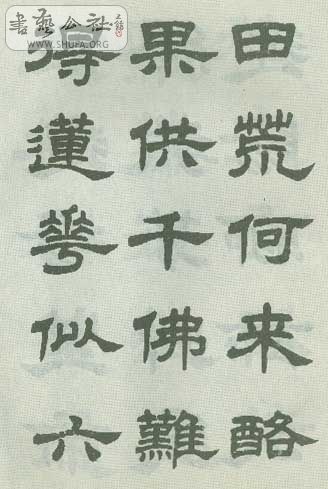 書藝公社
WWW.SHUFA.ORG
田荒何来酪
果供千佛難
得蓮花似六